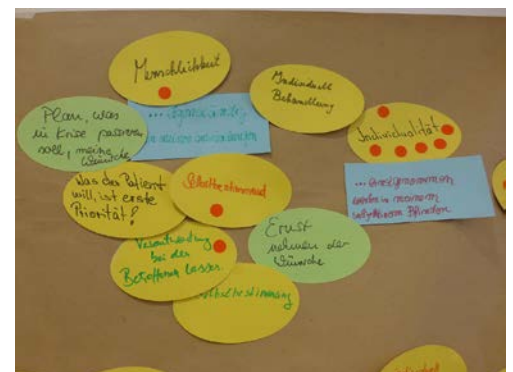 Menschlichkeit
Individuelle
Behandlung
Plan, was
in Krise passieren
soll, meine
Wünsche
Individualität
Was der Patient
will, ist erste
Priorität!
Selbstbestimmung
... ernstgenommen
werden in meinem
subjektiven Befinden
Ernst
nehmen der
Wünsche
Verantwortung
bei den
Betroffenen lassen
Selbstbestimmung